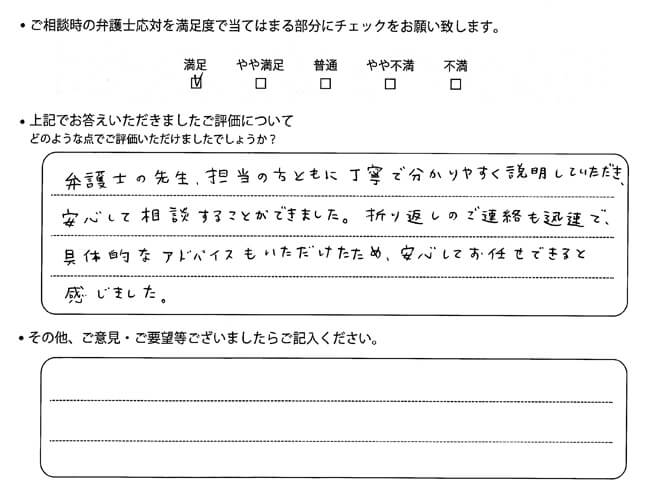 • ご相談時の弁護士応対を満足度で当てはまる部分にチェックをお願い致します。
満足 やや満足 普通 やや不満 不満
☑ ☐ ☐ ☐ ☐
• 上記でお答えいただきましたご評価について
どのような点でご評価いただけましたでしょうか？
弁護士の先生、担当の方ともに丁寧で分かりやすく説明していただき、
安心して相談することができました。折り返しのご連絡も迅速で、
具体的なアドバイスもいただけたため、安心してお任せできると
感じました。
• その他、ご意見・ご要望等ございましたらご記入ください。